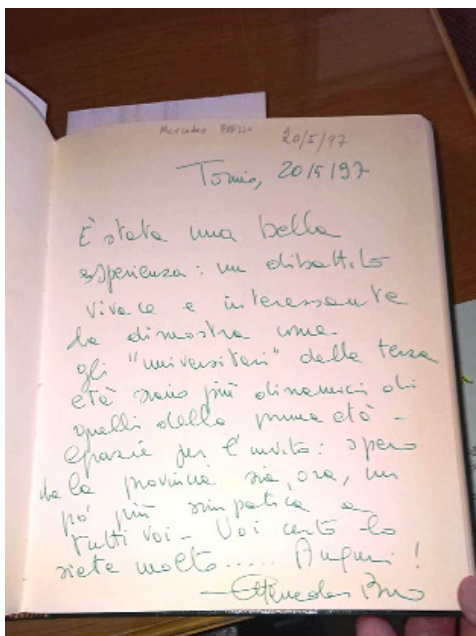 Mercedes 20/5/97
Torino, 20/5/97
È stata una bella
esperienza: un dibattito
vivace e interessante
da dimostra come
gli "universitari" della terza
età siano più dinamici di
quelli della prima età -
Grazie per l'invito: spero
che la provincia sia, ora, un
po' più simpatica a
tutti voi - Voi certo lo
siete molto..... Auguri!
Mercedes